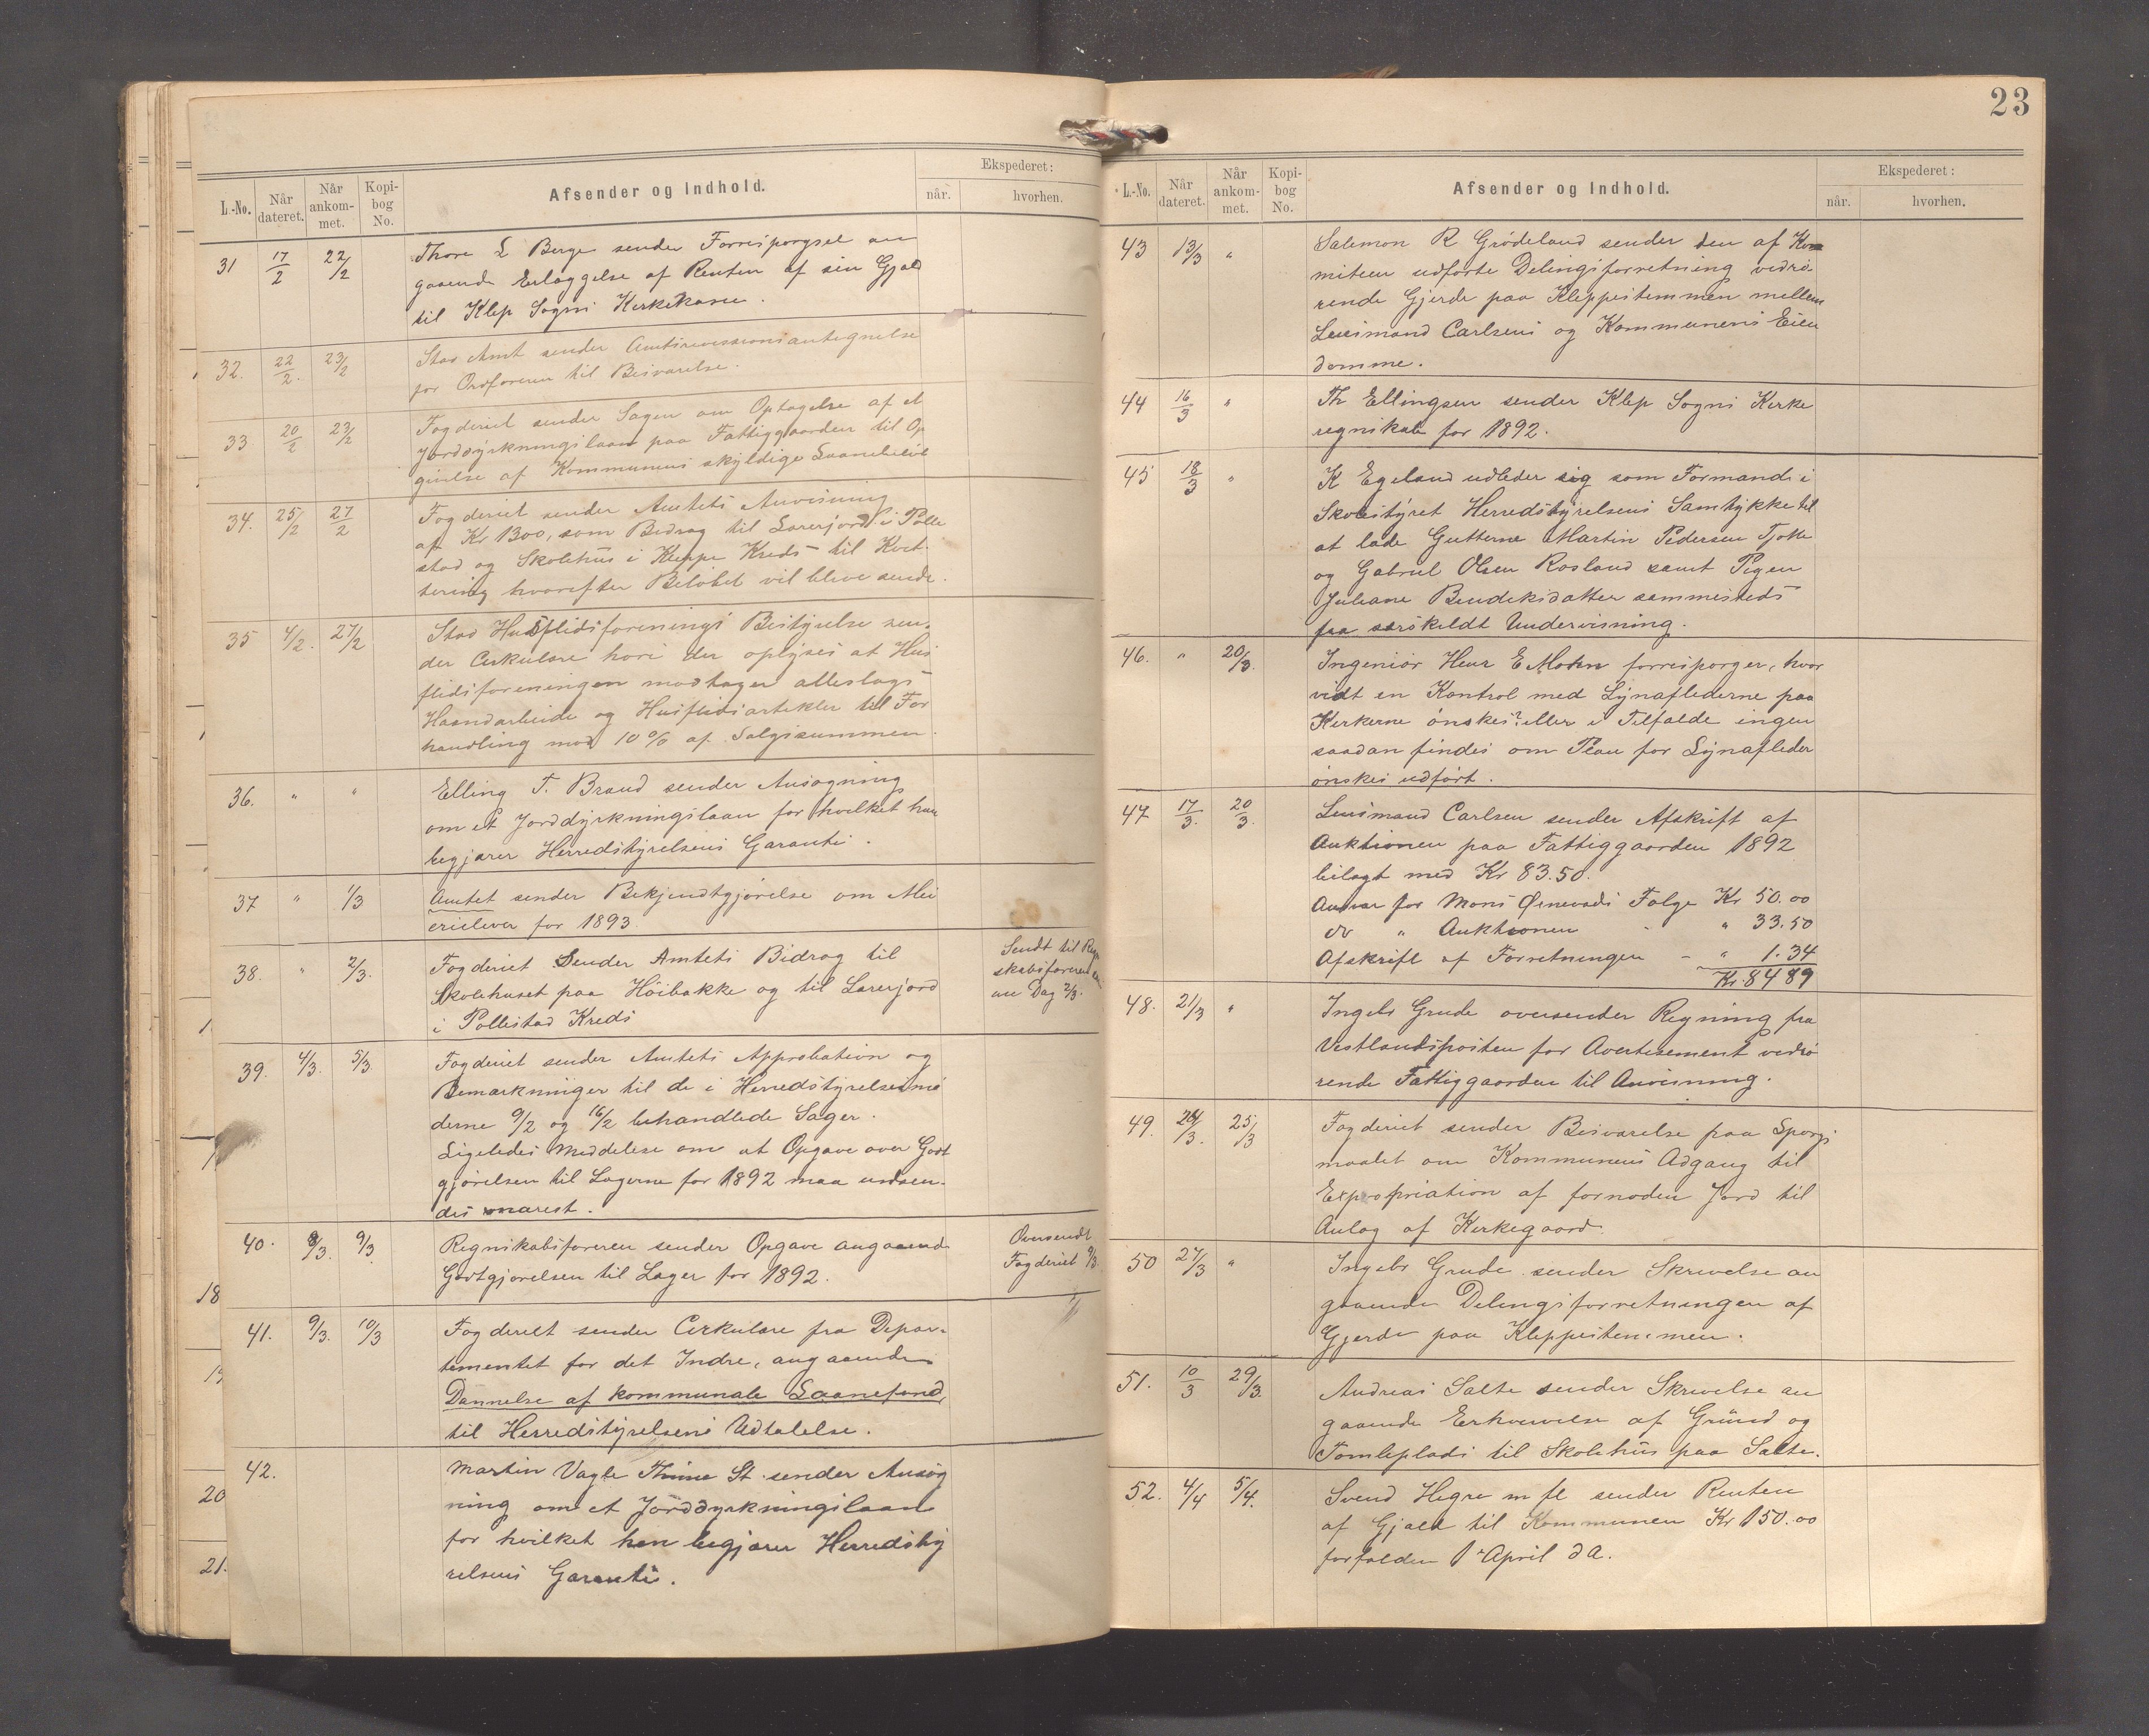 L.-No. Når dateret. Når ankommet. Kopibog No. Afsender og Indhold. Ekspederet: når. hvorhen.
31 17/2 22/2 Thore L Berge sender Forrespørgsel an
gaaende Erlæggelse af Renten af sin Gjæld
til Klep Sogns Kirkekasse.
32. 22/2. 23/2 Stav Amt sender Amtsrevisionsantegnelse
for Ordføreren til Besvarelse.
33 20/2 23/2 Fogderiet sender Sagen om Optagelse af et
Jorddyrkningslaan paa Fattiggaarden til Op
givelse af Kommunens skyldige Laanebeløb
34. 25/2 27/2 Fogderiet sender Amtets Anvisning
af Kr 1300, som Bidrag til Lærerjord i Polle
stad og Skolehus i Kleppe Kreds til Kvit-
tering hvorefter Beløbet vil blive sendt.
35 4/2. 27/2 Stav Husflidsforenings Bestyrelse sen-
der Cirkulære hvori der oplyses at Hus
flidsforeningen modtager alleslags
Haandarbeide og Husflidsartikler til For
handling mod 10 % af Salgssummen.
36. " " Elling T. Braud sender Ansøgning
om et Jorddyrkningslaan for hvilket han
begjærer Herredstyrelsens Garanti.
37 " 1/3 Amtet sender Bekjendtgjørelse om Mei
erielever for 1893
38. " 2/3. Fogderiet Sender Amtets Bidrag til
Skolehuset paa Høibakke og til Lærerjord
i Pollestad Kreds
Sendt til Regn
skabsføreren
an Dag 2/3.
39. 4/3. 5/3 Fogderiet sender Amtets Approbation og
Bemærkninger til de i Herredstyrelsesmø
derne 9/2 og 16/2 behandlede Sager.
Ligeledes Meddelese om at Opgave over Godt
gjørelsen til Lægerne for 1892 maa indsen-
des snarest.
40. 8/3. 9/3 Regnskabsføreren sender Opgave angaaend
Godtgjørelsen til Læger for 1892.
Oversendt
Fogderiet 9/3.
41. 9/3. 10/3 Fogderiet sender Cirkulære fra Depar-
tementet for det Indre, angaaende
Dannelse af kommunale Laanefond,
til Herredstyrelsens Udtalelse.
42. Martin Vagle Thime St. sender Ansøg
ning om et Jorddyrkningslaan
for hvilket han begjærer Herredsty
relsens Garanti.
23
L.-No. Når dateret. Når ankommet. Kopibog No. Afsender og Indhold. Ekspederet: når. hvorhen.
43 13/3 " Salemon R Grødeland sender den af Kom
miteen udførte Delingsforretning vedrø-
rende Gjerde paa Kleppestemmen mellem
Lensmand Carlsens og Kommunens Eien
domme.
44 16/3 " Th Ellingsen sender Klep Sogns Kirke
regnskab for 1892.
45 18/3 " K Egeland udbeder sig som Formand i
Skolestyret Herredstyrelsens Samtykke til
at lade Gutterne Martin Pedersen Tjøtte
og Gabriel Olsen Rosland samt Pigen
Juliane Bendiksdatter sammesteds
faa særskildt Undervisning.
46. " 20/3. Ingeniør Henr E Mohn forrespørger, hvor
vidt en Kontrol med Lynaflederne paa
Kirkerne ønskes? eller i Tilfælde ingen
saadan findes om Plan for Lynafleder
ønskes udført.
47 17/3. 20/3. Lensmand Carlsen sender Afskrift af
Auktionen paa Fattiggaarden 1892
bilagt med Kr 83.50.
Ansvar for Mons Ørnevads Følge Kr 50.00
do " Auktionen - " 33.50
Afskrift af Forretningen - " 1.34
Kr. 84 89
48. 21/3 " Ingebr Grude oversender Regning fra
Vestlandsposten for Avertisement vedrø
rende Fattiggaarden til Anvisning.
49. 24/3. 25/3 Fogderiet sender Besvarelse paa Spørgs
maalet om Kommunens Adgang til
Expropriation af fornøden Jord til
Anlæg af Kirkegaard.
50 27/3 " Ingebr Grude sender Skrivelse an
gaaende Delingsforretningen af
Gjerde paa Kleppestemmen.
51. 10/3 29/3. Andreas Salte sender Skrivelse an
gaaende Erhvervelse af Grund og
Tomteplads til Skolehus paa Salte.
52. 4/4 5/4. Svend Hegre m fl sender Renten
af Gjæld til Kommunen Kr 150.00
forfalden 1 April d A.